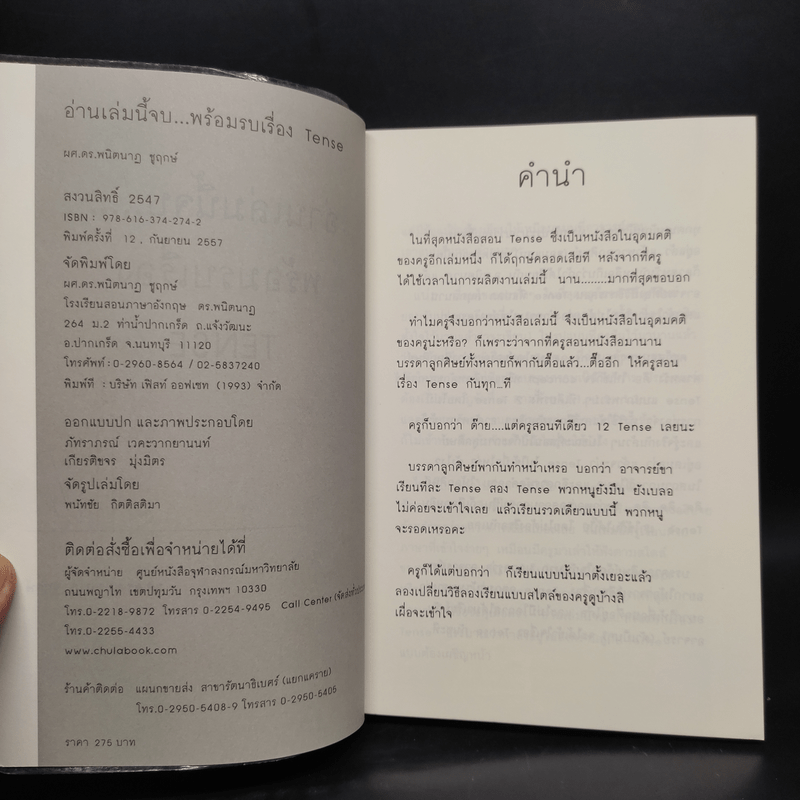 อ่านเล่มนี้จบ...พร้อมรบเรื่อง Tense
ผศ.ดร.พนิตนาฏ ชูฤกษ์
สงวนสิทธิ์ 2547
ISBN : 978-616-374-274-2
พิมพ์ครั้งที่ 12 , กันยายน 2557
จัดพิมพ์โดย
ผศ.ดร.พนิตนาฏ ชูฤกษ์
โรงเรียนสอนภาษาอังกฤษ ดร.พนิตนาฏ
264 ม.2 ท่าน้ำปากเกร็ด ถ.แจ้งวัฒนะ
อ.ปากเกร็ด จ.นนทบุรี 11120
โทรศัพท์ : 0-2960-8564 / 02-5837240
พิมพ์ที่ : บริษัท เฟิสท์ ออฟเซท (1993) จำกัด
ออกแบบปก และภาพประกอบโดย
ภัทราภรณ์ เวคะวากยานนท์
เกียรติขจร มุ่งมิตร
จัดรูปเล่มโดย
พนัทชัย กิตติสติมา
ติดต่อสั่งซื้อเพื่อจำหน่ายได้ที่
ผู้จัดจำหน่าย ศูนย์หนังสือจุฬาลงกรณ์มหาวิทยาลัย
ถนนพญาไท เขตปทุมวัน กรุงเทพฯ 10330
โทร.0-2218-9872 โทรสาร 0-2254-9495 Call Center
โทร.0-2255-4433
www.chulabook.com
ร้านค้าติดต่อ แผนกขายส่ง สาขารัตนาธิเบศร์ (แยกแคราย)
โทร.0-2950-5408-9 โทรสาร 0-2950-5405
ราคา 275 บาท
คำนำ
ในที่สุดหนังสือสอน Tense ซึ่งเป็นหนังสือในอุดมคติ
ของครูอีกเล่มหนึ่ง ก็ได้ฤกษ์คลอดเสียที หลังจากที่ครู
ได้ใช้เวลาในการผลิตงานเล่มนี้ นาน........มากที่สุดขอบอก
ทำไมครูจึงบอกว่าหนังสือเล่มนี้ จึงเป็นหนังสือในอุดมคติ
ของครูน่ะหรือ? ก็เพราะว่าจากที่ครูสอนหนังสือมานาน
บรรดาลูกศิษย์ทั้งหลายก็พากันตื๊อแล้ว...ตื๊ออีก ให้ครูสอน
เรื่อง Tense กันทุก...ที
ครูก็บอกว่า ต๊าย....แต่ครูสอนทีเดียว 12 Tense เลยนะ
บรรดาลูกศิษย์พากันทำหน้าเหรอ บอกว่า อาจารย์ขา
เรียนทีละ Tense สอง Tense พวกหนูยังมึน ยังเบลอ
ไม่ค่อยจะเข้าใจเลย แล้วเรียนรวดเดียวแบบนี้ พวกหนู
จะรอดเหรอคะ
ครูก็ได้แต่บอกว่า ก็เรียนแบบนั้นมาตั้งเยอะแล้ว
ลองเปลี่ยนวิธีลองเรียนแบบสไตล์ของครูดูบ้างสิ
เผื่อจะเข้าใจ